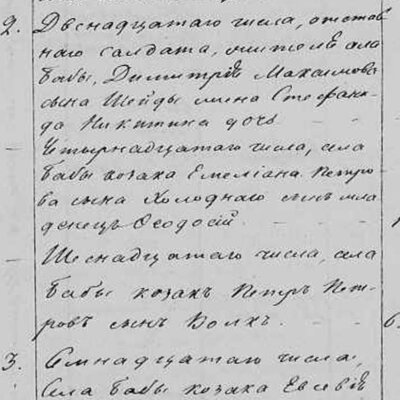 2. Двенадцатаго числа, отстав
наго солдата, жителя села
Бабы, Димитрія Максимова
сына Шейды жена Стефани-
да Никитина дочь
Четырнадцатаго числа, села
Бабы козака Емеліана Петро-
ва сына Холоднаго сынъ мла
денецъ Ѳеодосій.
Шеснадцатаго числа, села
Бабы козакъ Петръ Пет-
ровъ сынъ Волхъ.
3. Семнадцатаго числа,
Села Бабы козака Евсевія